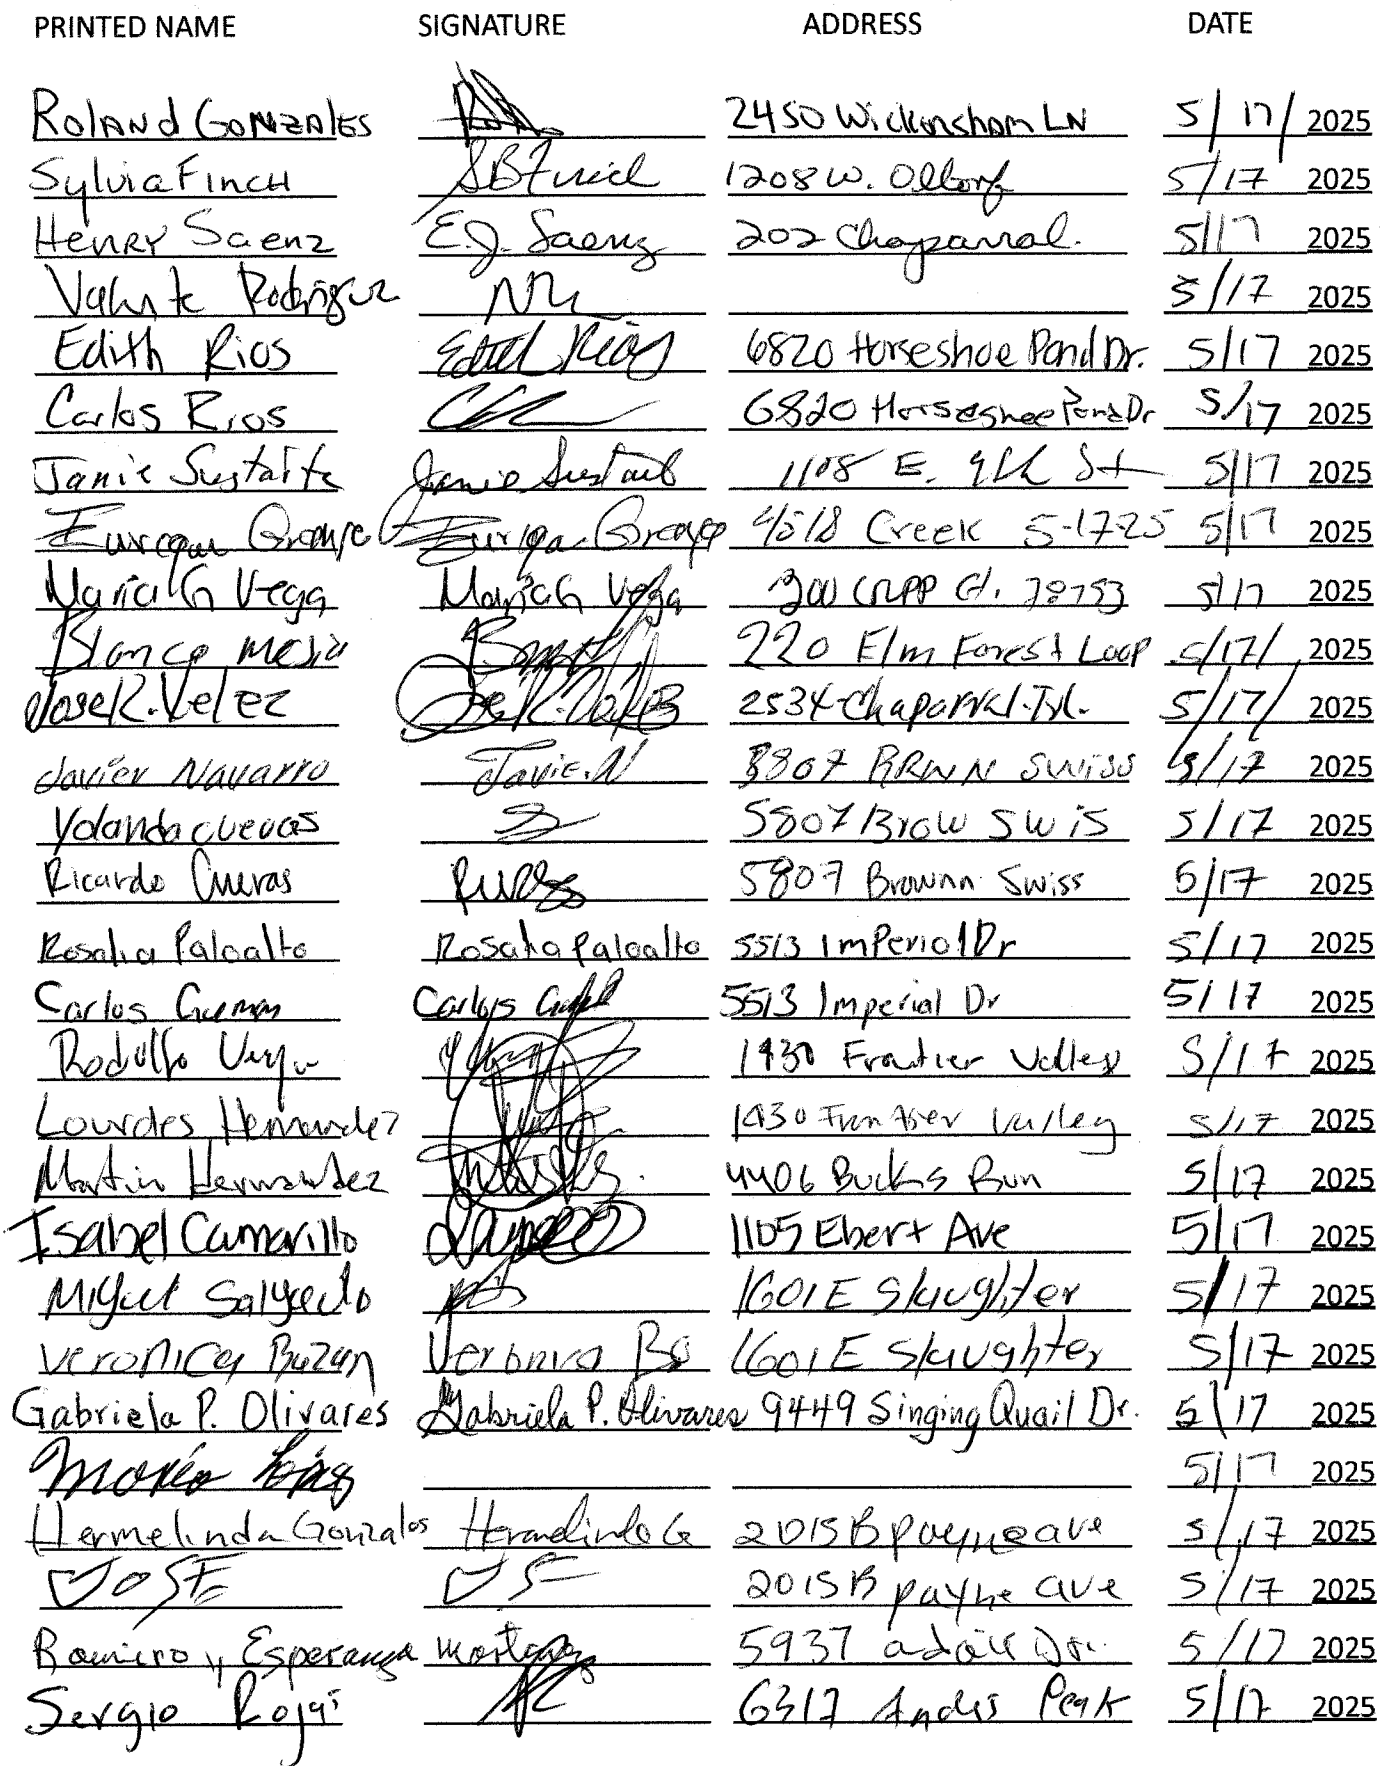 PRINTED NAME SIGNATURE ADDRESS DATE
Roland Gonzales 2450 Wickersham LN 5/17/2025
Sylvia Finch SBFinch 1208 W. Oltorf 5/17 2025
Henry Saenz E.J. Saenz 202 Chaparral. 5/17 2025
Rodriguez 5/17 2025
Edith Rios Edith Rios 6820 Horseshoe Pond Dr. 5/17 2025
Carlos Rios 6820 Horseshoe Pond Dr 5/17 2025
Janie Sustaita Janie Sustaita 1108 E. 9th St 5/17 2025
4518 Creek 5-17-25 5/17 2025
Maria G Vega Maria G Vega 300 Cripp Ct. 78753 5/17 2025
Blanca Mejia 220 Elm Forest Loop 5/17/ 2025
Jose R. Velez Jose R. Velez 2534 Chaparral Trl. 5/17/ 2025
Javier Navarro Javie.N 5807 Swiss 5/17 2025
Yolanda cuevas 5807 Brow Swis 5/17 2025
Ricardo Cuevas 5807 Brownn Swiss 5/17 2025
Rosalia Paloalto Rosalia Paloalto 5513 Imperial Dr 5/17 2025
Carlos Guzman Carlos 5513 Imperial Dr 5/17 2025
Rodolfo Vega 1430 Frontier Valley 5/17 2025
Lourdes Hernandez 1430 Frontier Valley 5/17 2025
Martin Hernandez 4406 Bucks Run 5/17 2025
Isabel Camarillo 1105 Ebert Ave 5/17 2025
Miguel Salgado 1601 E Slaughter 5/17 2025
Veronica Bazan Veronica 1601 E Slaughter 5/17 2025
Gabriela P. Olivares Gabriela P. Olivares 9449 Singing Quail Dr. 5/17 2025
5/17 2025
Hermelinda Gonzales Hermelinda G 2015 B payne ave 5/17 2025
JOSE 2015 B payne ave 5/17 2025
Ramiro y Esperanza Martinez 5937 Dr. 5/17 2025
Sergio Rojas 6317 Andes Peak 5/17 2025